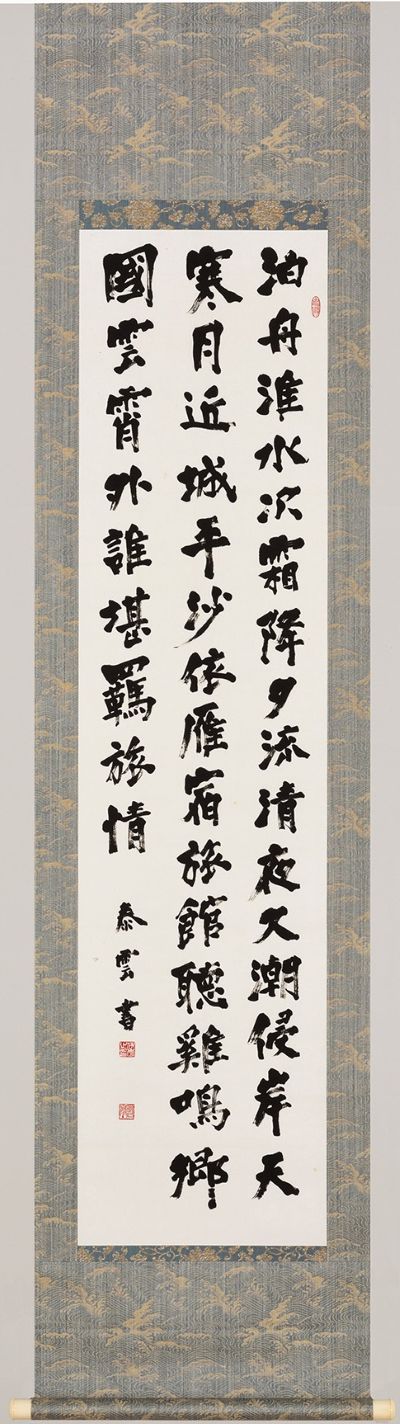 泊舟淮水次霜降夕流清夜久潮侵岸天
寒月近城平沙依雁宿旅館聽雞鳴鄉
國雲霄外誰堪羈旅情
泰雲書